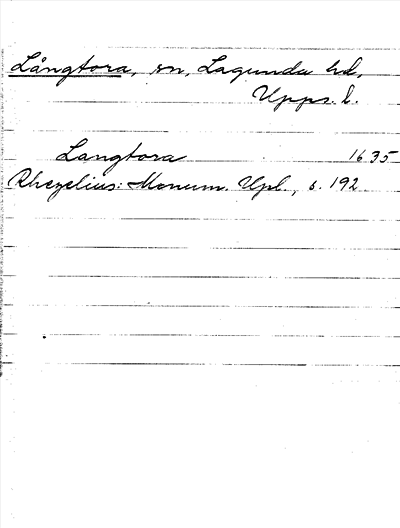 Långtora, sn, Lagunda hd,
Upps. l.
Langtora 1635
Rhezelius: Monum. Upl., s. 192